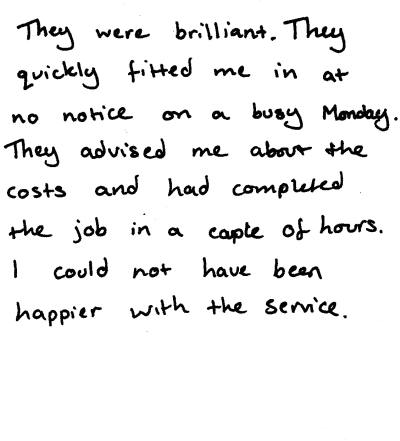 They were brilliant. They
quickly fitted me in at
no notice on a busy Monday.
They advised me about the
costs and had completed
the job in a caple of hours.
I could not have been
happier with the service.